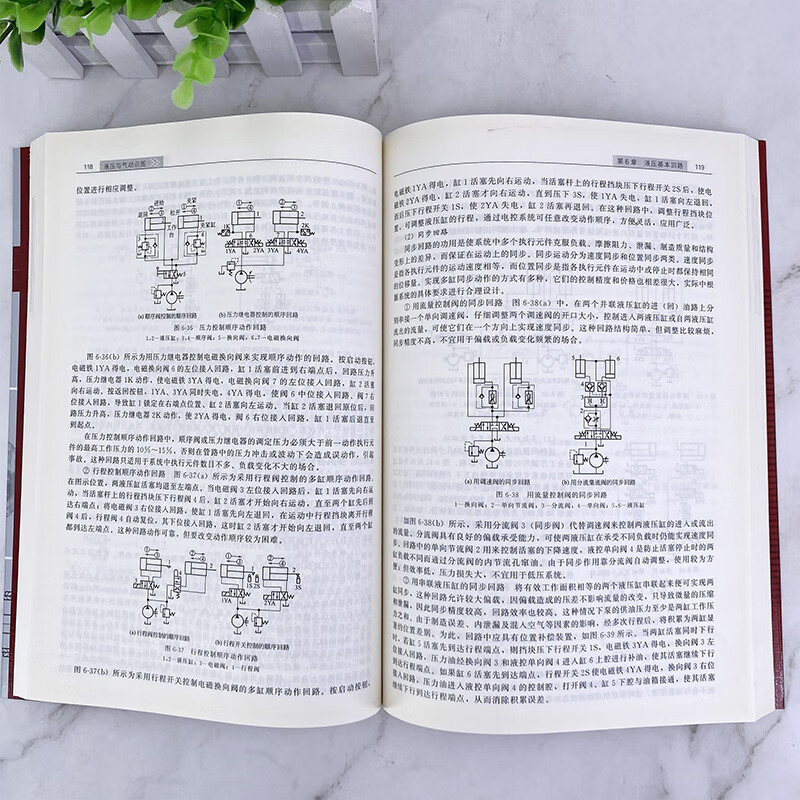 118 液压与气动识图
位置进行相应调整。
(a) 顺序阀控制的顺序回路 (b) 压力继电器控制的顺序回路
图 6-36 压力控制顺序动作回路
1,2—液压缸；3,4—顺序阀；5—换向阀；6,7—电磁换向阀
图 6-36(b) 所示为用压力继电器控制电磁换向阀来实现顺序动作的回路。按启动按钮，
电磁铁 1YA 得电，电磁换向阀 6 的左位接入回路，缸 1 活塞前进到右端点后，回路压力升
高，压力继电器 1K 动作，使电磁铁 3YA 得电，电磁换向阀 7 的左位接入回路，缸 2 活塞
向右运动。按返回按钮，1YA、3YA 同时失电，4YA 得电，使阀 6 中位接入回路、阀 7 右
位接入回路，导致缸 1 锁定在右端点位置、缸 2 活塞向左运动。当缸 2 活塞退回原位后，回
路压力升高，压力继电器 2K 动作，使 2YA 得电，阀 6 右位接入回路，缸 1 活塞后退直至
到起点。
在压力控制顺序动作回路中，顺序阀或压力继电器的调定压力必须大于前一动作执行元
件的最高工作压力的 10%～15%，否则在管路中的压力冲击或波动下会造成误动作，引起
事故。这种回路只适用于系统中执行元件数目不多、负载变化不大的场合。
② 行程控制顺序动作回路 图 6-37(a) 所示为采用行程阀控制的多缸顺序动作回路。
在图示位置，两液压缸活塞均退至左端点。当电磁阀 3 左位接入回路后，缸 1 活塞先向右运
动，当活塞杆上的行程挡块压下行程阀 4 后，缸 2 活塞才开始向右运动，直至两个缸先后到
达右端点；将电磁阀 3 右位接入回路，使缸 1 活塞先向左退回，在运动中行程挡块离开行程
阀 4 后，行程阀 4 自动复位，其下位接入回路，这时缸 2 活塞才开始向左退回，直至两个缸
都到达左端点。这种回路动作可靠，但要改变动作顺序较为困难。
(a) 行程阀控制的顺序回路 (b) 行程开关控制的顺序回路
图 6-37 行程控制顺序动作回路
1,2—液压缸；3—电磁阀；4—行程阀
图 6-37(b) 所示为采用行程开关控制电磁换向阀的多缸顺序动作回路。按启动按钮，
第 6 章 液压基本回路 119
电磁铁 1YA 得电，缸 1 活塞先向右运动，当活塞杆上的行程挡块压下行程开关 2S 后，使电
磁铁 2YA 得电，缸 2 活塞才向右运动，直到压下 3S，使 1YA 失电，缸 1 活塞向左退回，
而后压下行程开关 1S，使 2YA 失电，缸 2 活塞再退回。在这种回路中，调整行程挡块位
置，可调整液压缸的行程，通过电控系统可任意改变动作顺序，方便灵活，应用广泛。
(2) 同步回路
同步回路的功用是使系统中多个执行元件克服负载、摩擦阻力、泄漏、制造质量和结构
变形上的差异，而保证在运动上的同步。同步运动分为速度同步和位置同步两类。速度同步
是指各执行元件的运动速度相等，而位置同步是指各执行元件在运动中或停止时都保持相同
的位移量。实现多缸同步动作的方式有多种，它们的控制精度和价格也相差很大，实际中根
据系统的具体要求进行合理设计。
① 用流量控制阀的同步回路 图 6-38(a) 中，在两个并联液压缸的进（回）油路上分
别串接一个单向调速阀，仔细调整两个调速阀的开口大小，控制进入两液压缸或自两液压缸
流出的流量，可使它们在一个方向上实现速度同步。这种回路结构简单，但调整比较麻烦，
同步精度不高，不宜用于偏载或负载变化频繁的场合。
(a) 用调速阀的同步回路 (b) 用分流集流阀的同步回路
图 6-38 用流量控制阀的同步回路
1—换向阀；2—单向节流阀；3—分流阀；4—单向阀；5,6—液压缸
如图 6-38(b) 所示，采用分流阀 3（同步阀）代替调速阀来控制两液压缸的进入或流出
的流量。分流阀具有良好的偏载承受能力，可使两液压缸在承受不同负载时仍能实现速度同
步。回路中的单向节流阀 2 用来控制活塞的下降速度，液控单向阀 4 是防止活塞停止时的两
缸负载不同而通过分流阀的内节流孔窜油。由于同步作用靠分流阀自动调整，使用较为方
便；但效率低，压力损失大，不宜用于低压系统。
② 用串联液压缸的同步回路 将有效工作面积相等的两个液压缸串联起来便可实现两
缸同步，这种回路允许较大偏载，因偏载造成的压差不影响流量的改变，只导致微量的压缩
和泄漏，因此同步精度较高，回路效率也较高。这种情况下泵的供油压力至少是两缸工作压
力之和。由于制造误差、内泄漏及混入空气等因素的影响，经多次行程后，将积累为两缸显
著的位置差别。为此，回路中应具有位置补偿装置，如图 6-39 所示。当两缸活塞同时下行
时，若缸 5 活塞先到达行程端点，则挡块压下行程开关 1S，电磁铁 3YA 得电，换向阀 3 左
位接入回路，压力油经换向阀 3 和液控单向阀 4 进入缸 6 上腔进行补油，使其活塞继续下行
到达行程端点。如果缸 6 活塞先到达端点，行程开关 2S 使电磁铁 4YA 得电，换向阀 3 右位
接入回路，压力油进入液控单向阀 4 的控制腔，打开阀 4、缸 5 下腔与油箱接通，使其活塞
继续下行到达行程端点，从而消除积累误差。